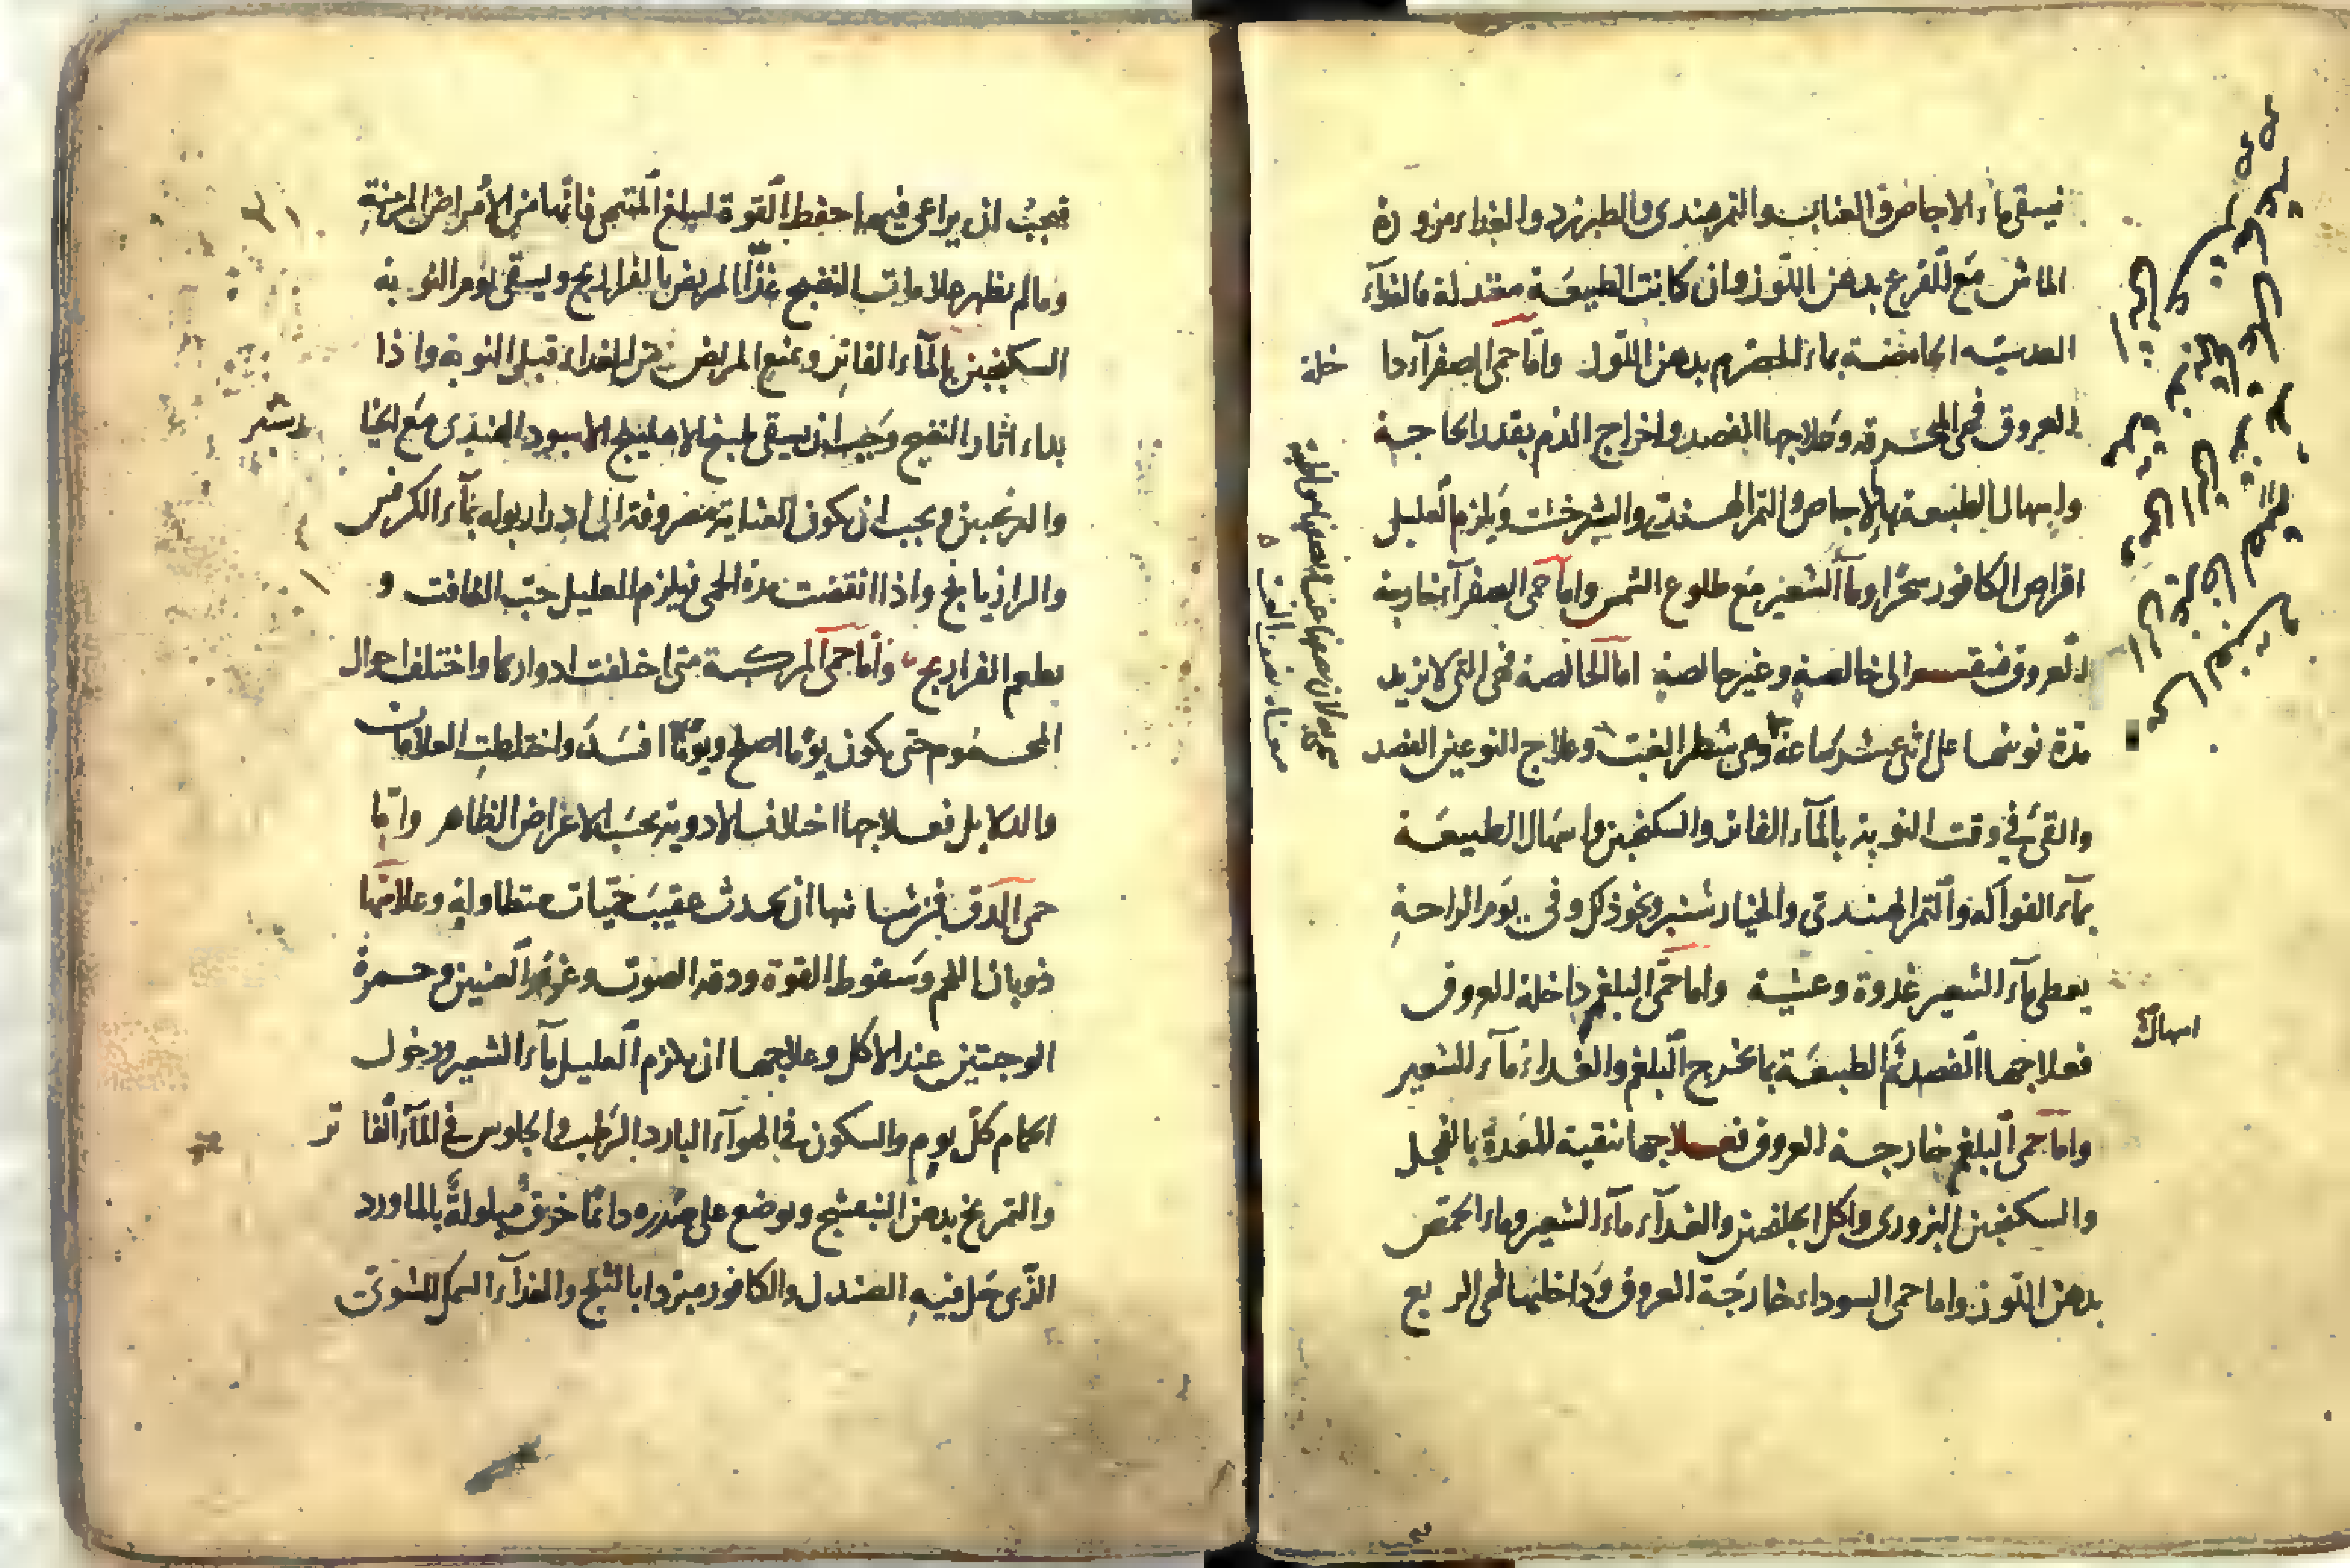 فيسقى ماء الاجاص والعناب والتمر هندى والطبرزد والغذاء مزورة
الماش مع القرع بدهن اللوز وان كانت الطبيعة معتدلة فالغذآء
العدسية الحامضة بماء الحصرم بدهن اللوز واما حمى الصفرآء دا
خلة
العروق فهى المحرقة وعلاجها الفصد واخراج الدم بقدر الحاجة
واسهال الطبيعة بالاجاص والتمر الهندى والشيرخشت ويلزم العليل
اقراص الكافور سحرا ومآء الشعير مع طلوع الشمس واما حمى الصفرآء خارجة
العروق فتنقسم الى خالصة وغير خالصة اما الخالصة فهى التى لا تزيد
مدة نوبتها على اثنى عشر ساعة وهى شطر الغب وعلاج النوعين الفصد
والقئ فى وقت النوبة بالمآء الفاتر والسكنجبين واسهال الطبيعة
بمآء الفواكه والتمر الهندى والخيارشنبر ونحو ذلك وفى يوم الراحة
يعطى مآء الشعير غدوة وعشية واما حمى البلغم داخلة العروق
فعلاجها الفصد ثم الطبيعة بما يخرج البلغم والغداء مآء الشعير
اسهال
واما حمى البلغم خارجة العروق فعلاجها تنقية المعدة بالفجل
والسكنجبين البزورى واكل الجلنجبين والغدآء مآء الشعير وماء الحمص
بدهن اللوز واما حمى السوداء خارجة العروق وداخلتها فهى الربع
فيجب ان يراعى فيها حفظ القوة ليبلغ المنتهى فانها من الامراض المزمنة
وما لم يظهر علامات النضج غذا المريض بالفراريج ويسقى يوم النوبة
السكنجبين بالمآء الفاتر ويمنع المريض من الغداء قبل النوبة واذا
بداء اثار النضج وجب ان يسقى طبيخ الاهليلج الاسود الهندى مع الخيا
رشنبر
والترنجبين ويجب ان يكون العناية مصروفة الى ادرار بوله بمآء الكرفس
والرازيانج واذا انقضت مدة الحمى فيلزم العليل حب الغافت و
يطعم الفراريج واما حمى المركبة متى اختلفت ادوارها واختلف احوال
المحموم حتى يكون يوما اصلح ويوما افسد واختلطت العلامات
والدلايل فعلاجها اختلاف الادوية بحسب الاعراض الظاهر واما
حمى الدق فمن شانها ان يحدث عقيب حميات متطاولة وعلامتها
ذوبان اللحم وسقوط القوة ودقة الصوت وغور العينين وحمرة
الوجنتين عند الاكل وعلاجها ان يلازم العليل مآء الشعير ودخول
الحمام كل يوم والسكون فى الهوآء البارد الرطب والجلوس فى المآء الفا تر
والتمريخ بدهن البنفسج ويوضع على صدره دائما خرق مبلولة بالماورد
الذى حل فيه الصندل والكافور مبردا بالثلج والغدآء السمك المشوى